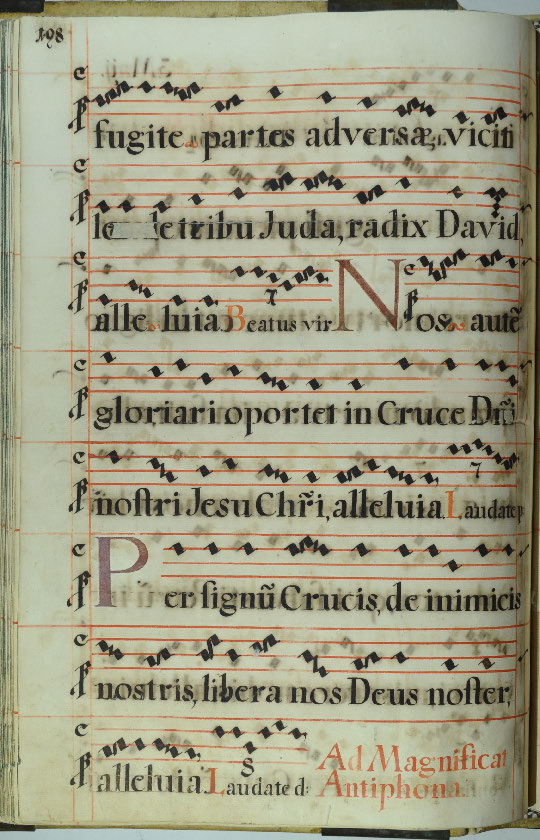 198
fugite partes adversæ, vicit
le de tribu Juda, radix David,
alle luia. Beatus vir Nos autẽ
gloriari oportet in Cruce Dñi
nostri Jesu Chr̃i, alleluia. Laudate p
Per signũ Crucis, de inimicis
nostris, libera nos Deus noster,
alleluia. Laudate d: Ad Magnificat
Antiphona.